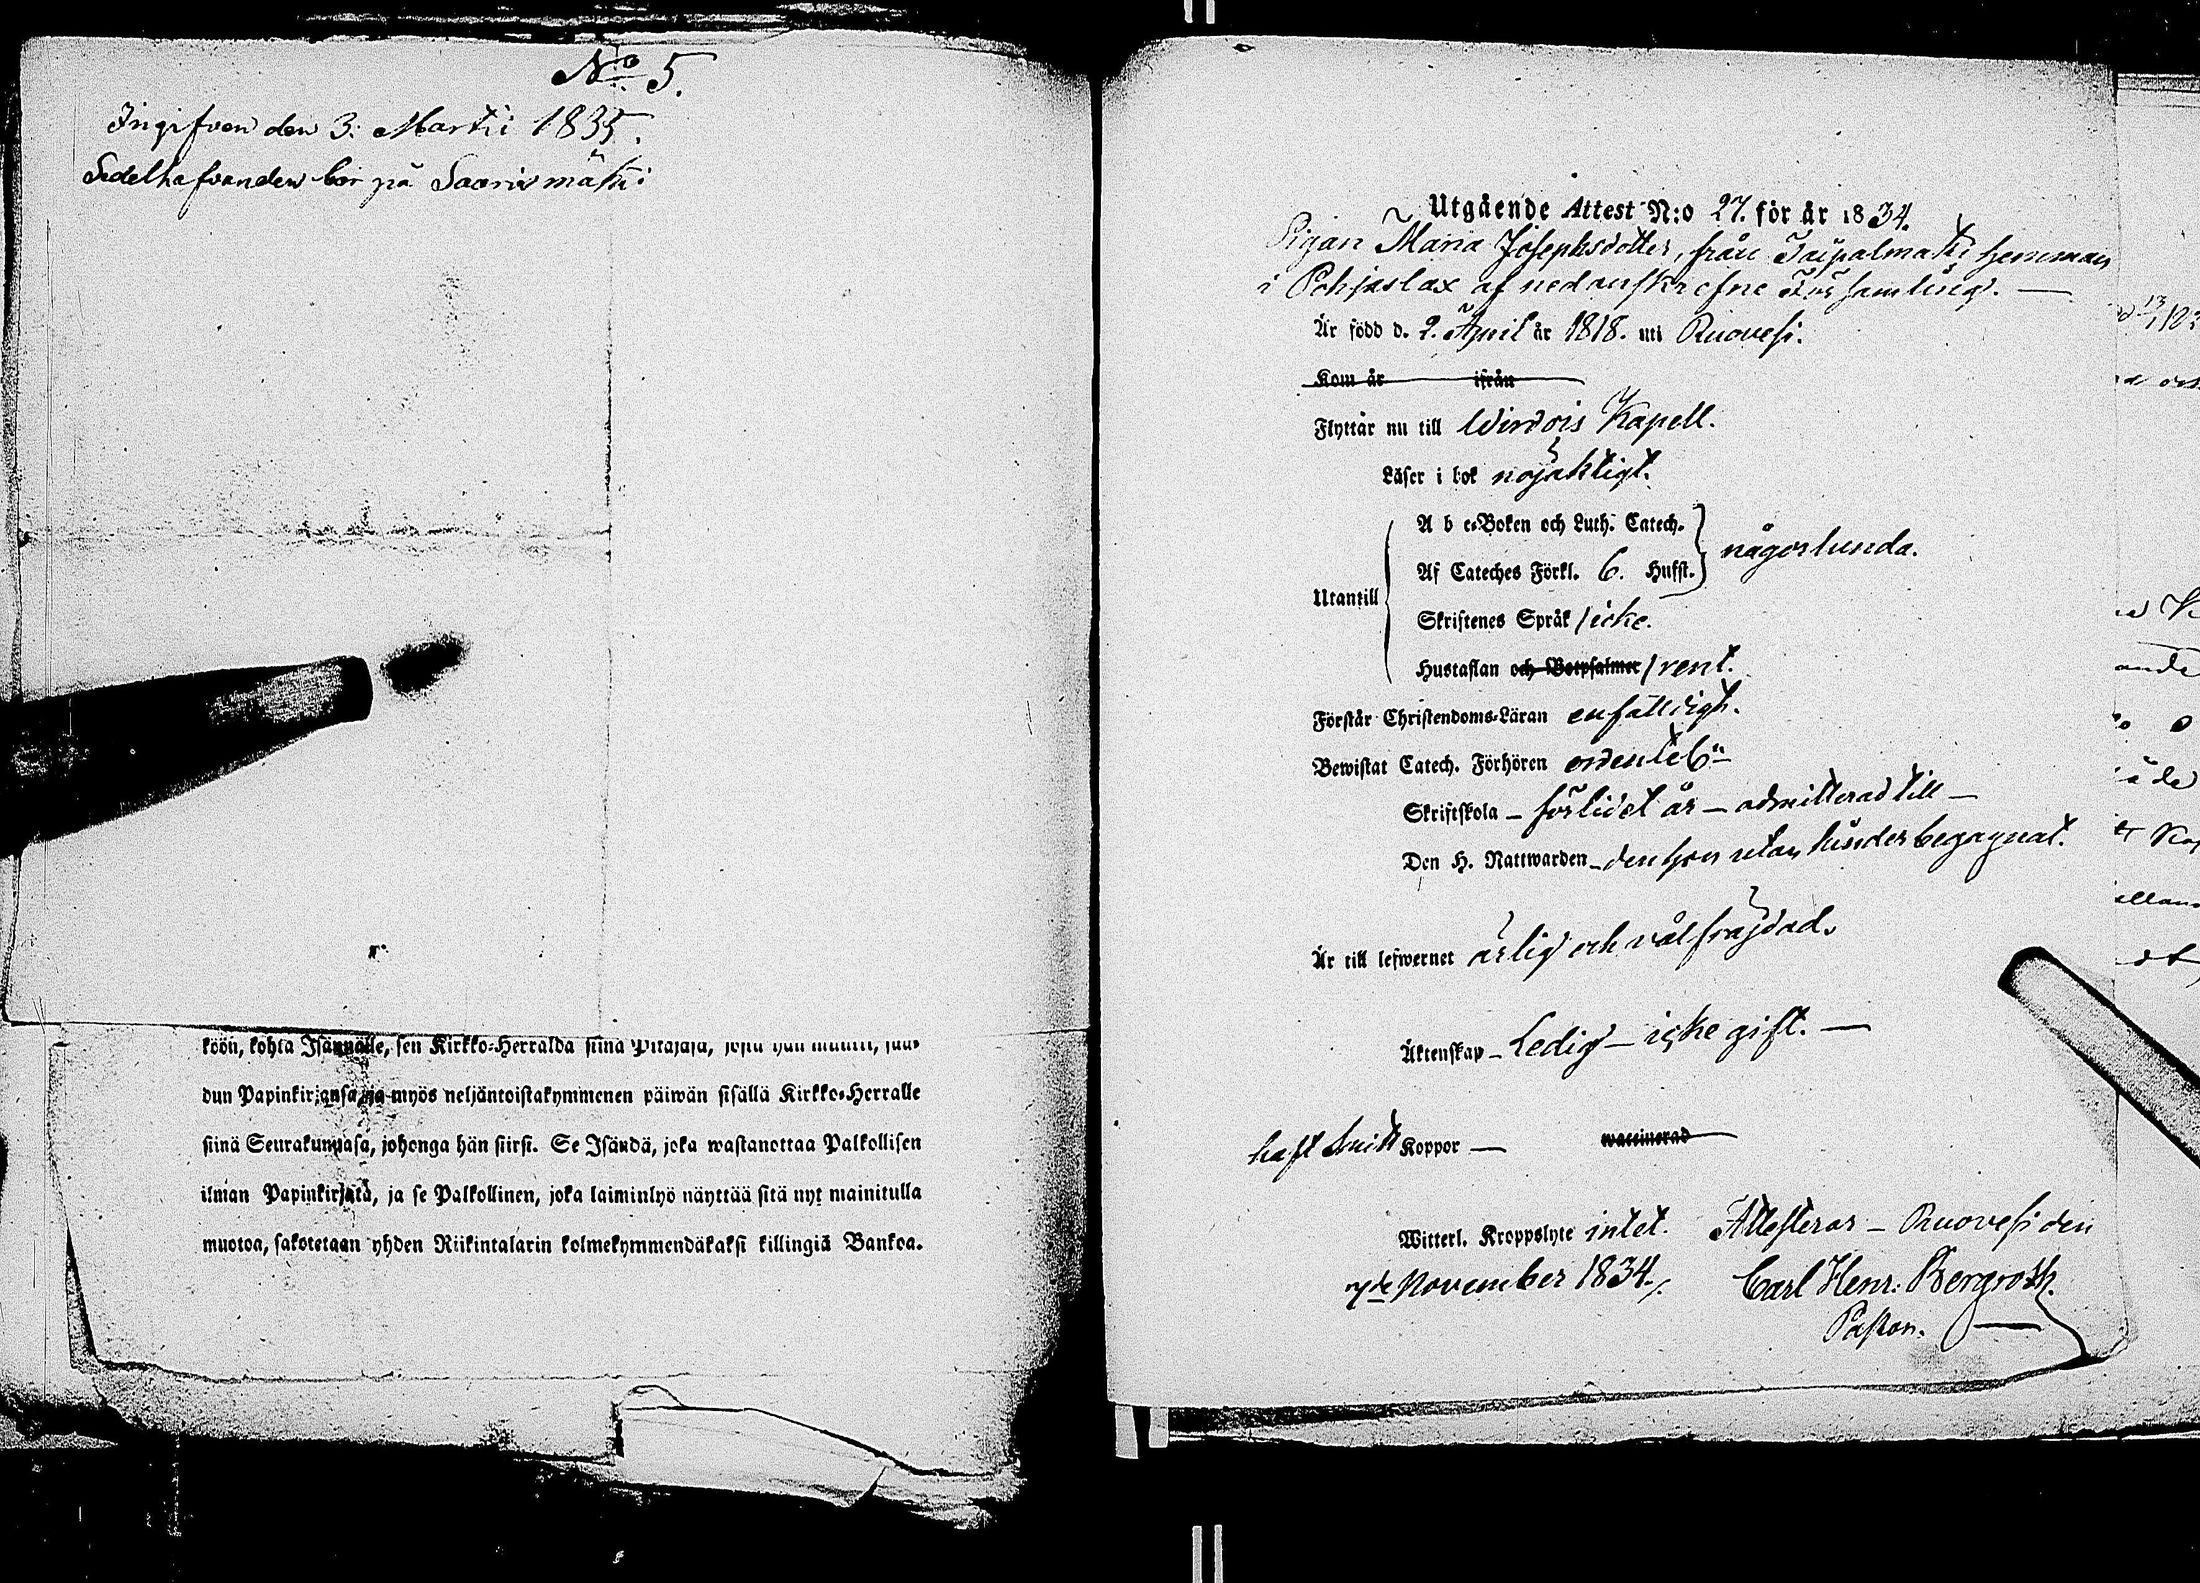 No 5.
Ingifven den 3: Martii 1835.
Sedelhafvanden bor på Saarismäki
köön, kohta Isännälle, sen Kirkko-Herralda siinä Pitäjäsä, josta hän muutti, saa-
dun Papinkirjansa, ja myös neljäntoistakymmenen päiwän sisällä Kirkko-Herralle
siinä Seurakunnasa, johonga hän siirsi. Se Isändä, joka wastanottaa Palkollisen
ilman Papinkirjatä, ja se Palkollinen, joka laiminlyö näyttää sitä nyt mainitulla
muotoa, sakotetaan yhden Riikintalarin kolmekymmendäkaksi killingiä Bankoa.
Utgående Attest N:o 27. för år 1834.
Pigan Maria Josephsdotter, från Taipalmäki Hemman
i Pohjaslax af nedanskrefne Församling. —
Är född d. 2. April år 1818. uti Ruovesi.
Kom år ifrån
Flyttar nu till Wirdois Kapell.
Läser i bok nöjaktigt.
A b c-Boken och Luth. Catech.
någorlunda.
Af Cateches Förkl. 6. Hufst.
Utantill
Skriftenes Språk / icke.
Hustaflan och Botpsalmer / rent.
Förstår Christendoms-Läran enfäldigt.
Bewistat Catech. Förhören ordentel:n
Skriftskola — förlidet år — admitterad till —
Den H. Nattwarden — den hon utan hinder begagnat.
Är till lefwernet ärlig och välfräjdad.
Äktenskap — Ledig — icke gift. —
haft Koppor — waccinerad
Witterl. Kroppslyte intet. Attesterar — Ruovesi den
7de November 1834./. Carl Henr: Bergroth.
Pastor.